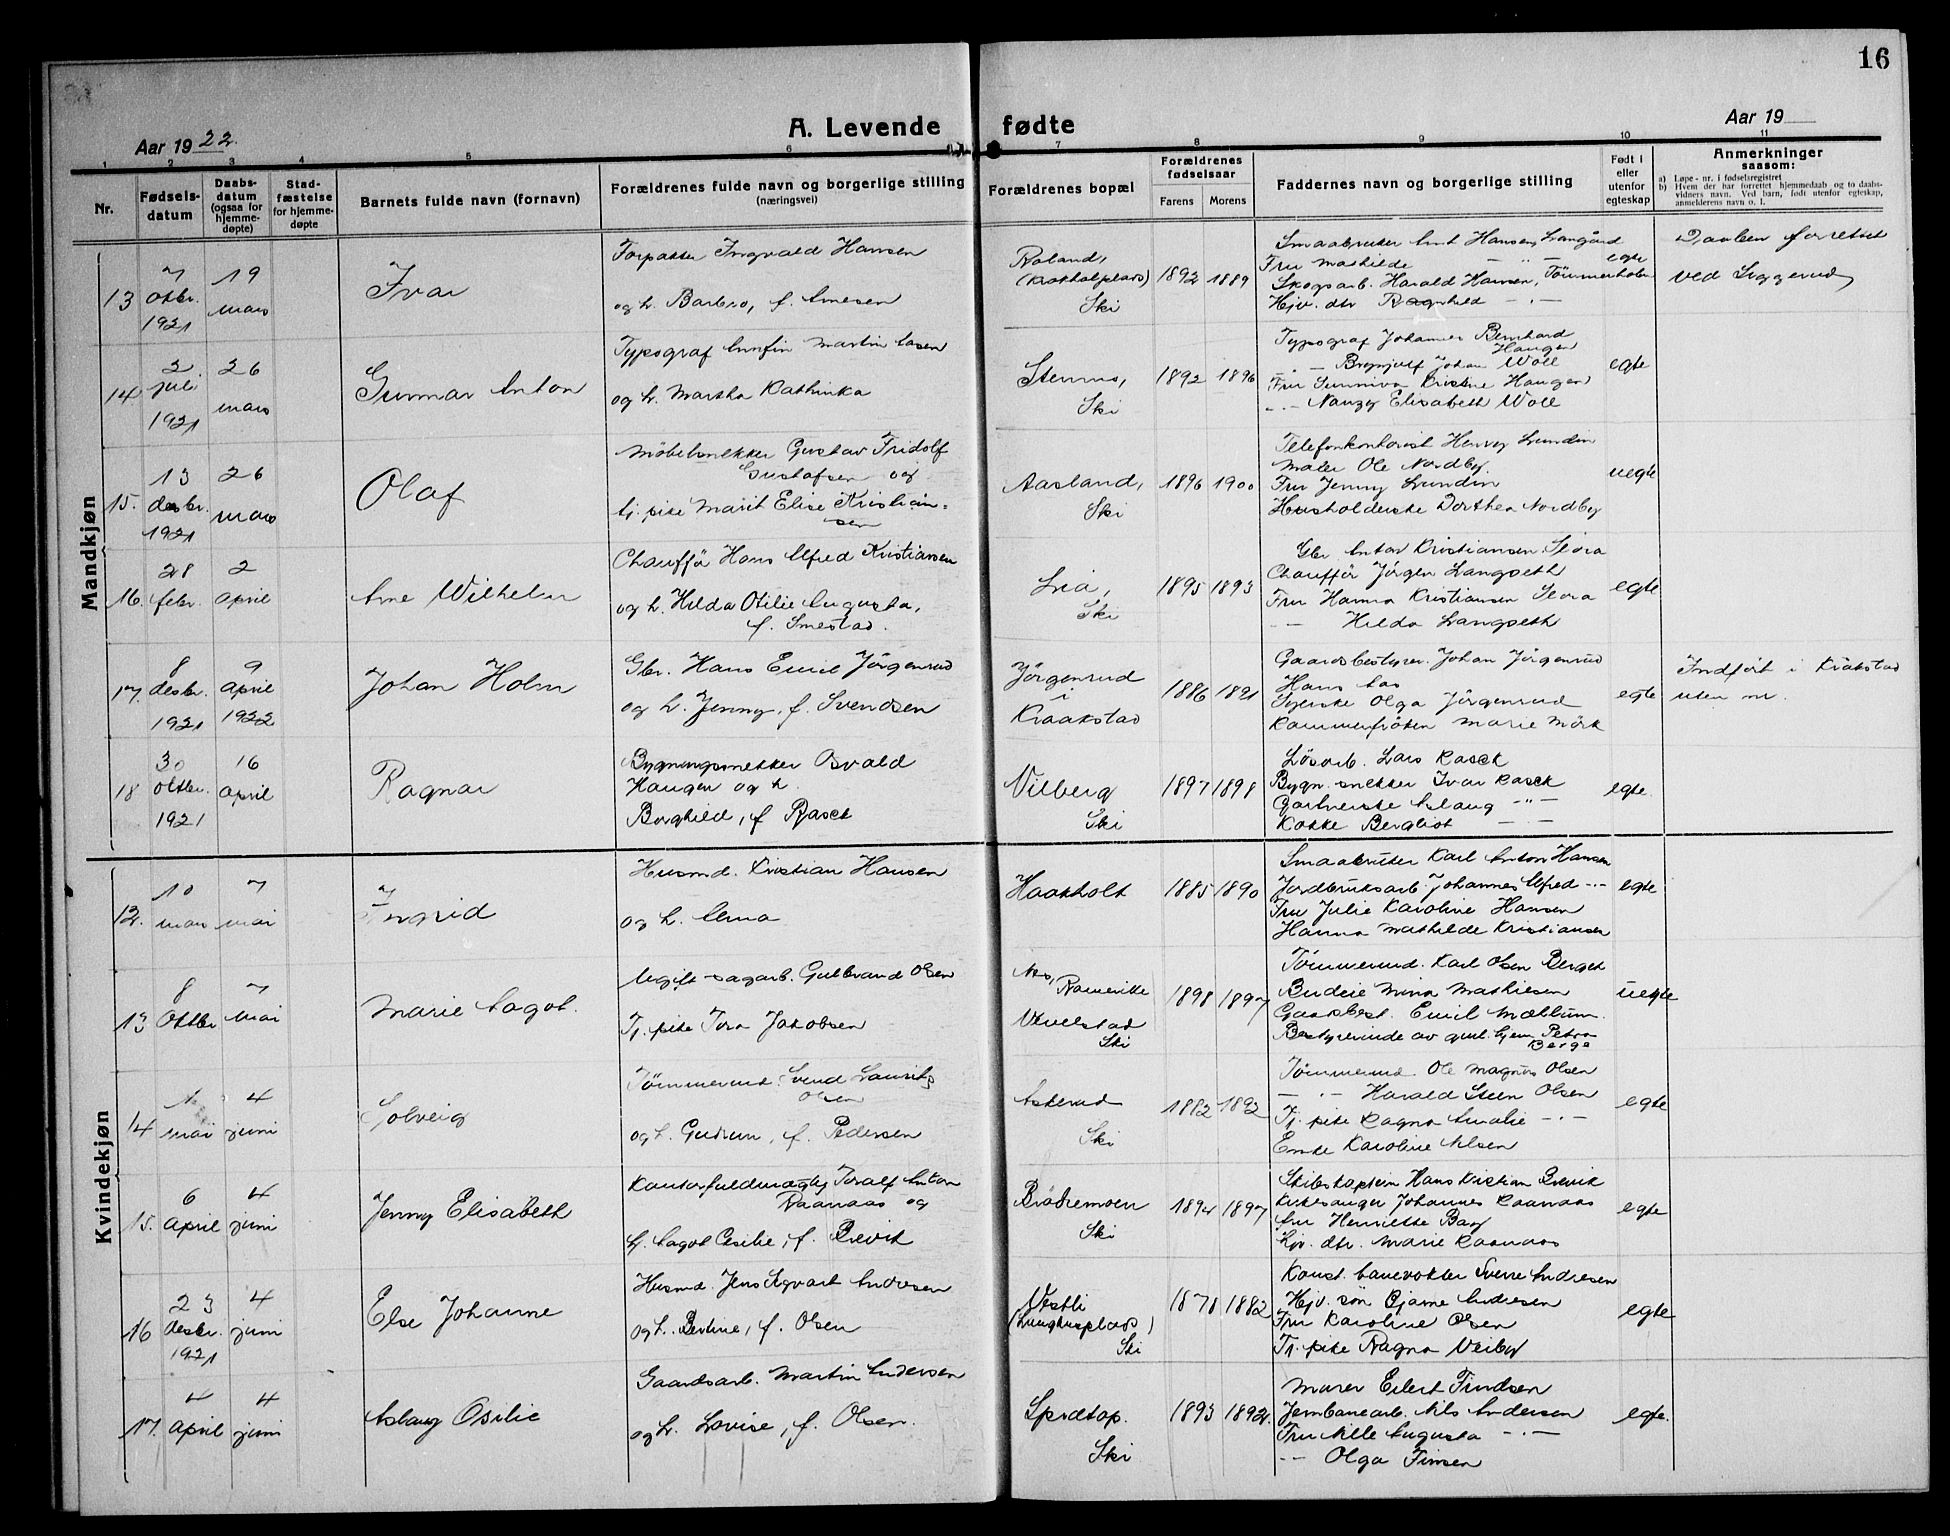 16
A. Levende fødte
Aar 1922.
Aar 19
1 2 3 4 5 6 7 8 9 10 11
Nr.
Fødsels-
datum
Daabs-
datum
(ogsaa for
hjemme-
døpte)
Stad-
fæstelse
for hjemme-
døpte
Barnets fulde navn (fornavn)
Forældrenes fulde navn og borgerlige stilling
(næringsvei)
Forældrenes bopæl
Forældrenes
fødselsaar
Farens Morens
Faddernes navn og borgerlige stilling
Født i
eller
utenfor
egteskap
Anmerkninger
saasom:
a) Løpe-nr. i fødselsregistret
b) Hvem der har forrettet hjemmedaab og to daabs-
vidners navn. Ved barn, født utenfor egteskap,
anmelderens navn o. l.
Mandkjøn
13
7
oktbr.
1921
19
mars
Ivar
Forpakter Ingvald Hansen
og h. Barbro, f. Arnesen
Roland,
Ski
1892 1889
Smaabruker Hansen,
Fru Mathilde — " —
Skogsarb. Harald Hansen,
Hjv. dtr. Ragnhild — " —
egte
Daaben forrettet
ved
14
2
juli
1921
26
mars
Gunnar Anton
Typograf Martin
og h. Martha Kathinka
Stenmo,
Ski
1892 1896
Typograf Johannes Bernhard
Haugen
— " — Brynjulf Johan Woll
Fru Sunniva Kristine Haugen
— " — Nanzy Elisabeth Woll
egte
15.
13
desbr.
1921
26
mars
Olaf
Møbelsnekker Gustav Fridolf
Gustafsen og
tj. pike Marit Elise Kristian-
sen
Aasland,
Ski
1896 1900
Telefonkontorist Henry Lundin
Maler Ole Nordby.
Fru Jenny Lundin
Husholderske Dorthea Nordby
uegte
16.
28
febr.
2
april
Arne Wilhelm
Chauffør Hans Alfred Kristiansen
og h. Hilda Otilie Augusta,
f. Smestad.
Lia,
Ski
1895 1893
Gbr. Anton Kristiansen Slora
Chauffør Jørgen Langseth
Fru Hanna Kristiansen Slora
— " — Hilda Langseth
egte
17.
8
desbr.
1921
9
april
1922
Johan Holm
Gbr. Hans Emil Jørgensrud
og h. Jenny, f. Svendsen
Jørgensrud
i
Kraakstad
1886 1891
Gaardsbestyrer Johan Jørgensrud
Hans Aas
Syerske Olga Jørgensrud
Kammerfrøken Marie Mörk
egte
Indført i Kraakstad
uten nr.
18
30
oktbr.
1921
16
april
Ragnar
Bygningssnekker Osvald
Haugen og h.
Borghild, f. Rasch
Vilberg
Ski
1897 1898
Løsarb. Lars Rasch
Bygn. snekker Ivar Rasch
Gartnerske Aslaug — " —
Kokke Bergliot — " —
egte.
Kvindekjøn
12.
10
mars
7
mai
Ingrid
Husmd. Kristian Hansen
og h. Anna
Haakholt
1885 1890
Smaabruker Karl Anton Hansen
Jordbruksarb. Johannes Alfred — " —
Fru Julie Karoline Hansen
Hanna Mathilde Kristiansen
egte
13
8
oktbr
7
mai
Marie Aagot.
Ugift sagarb. Gulbrand Olsen
Tj. pike Tora Jakobsen
Aas,
Vevelstad
Ski
1898 1897
Tømmermd. Karl Olsen Berget
Budeie Mina Mathisen
Gaardbest. Emil Mællum.
Bestyrerinde av gml. hjem Petra
Berge
uegte
14
mai
4
juni
Solveig
Tømmermd. Svend Laurits
Olsen
og h. Gudrun, f. Pedersen
Askerud
Ski
1882 1892
Tømmermd. Ole Magnus Olsen
— " — Harald Steen Olsen
Tj. pike Ragna Amalie — " —
Enke Karoline Nilsen
egte
15.
6
april
4
juni
Jenny Elisabeth
Kontorfuldmægtig Toralf Anton
Raanaas og
h. Aagot Cecilie, f. Brevik
Brødremoen
Ski
1894 1897
Skibskaptein Hans Kristian Brevik
Kirkesanger Johannes Raanaas
Fru Henriette Berg
Hjv. dtr. Marie Raanaas
egte
16
23
desbr.
1921
4
juni
Else Johanne
Husmd. Jens Sigvart Andresen
og h. Berthine, f. Olsen
Vestli
Ski
1878 1882
Konst. banevokter Sverre Andresen
Hjv. søn Bjarne Andresen
Fru Karoline Olsen
Tj. pike Ragna Veiby
egte
17.
4
april
4
juni
Aslaug Osilie
Gaardsarb. Martin Andersen
og h. Lovise, f. Olsen.
Ski
1893 1892.
Murer Eilert Findsen
Jernbanearb. Nils Andersen
Fru Augusta — " —
— " — Olga Finsen
egte.